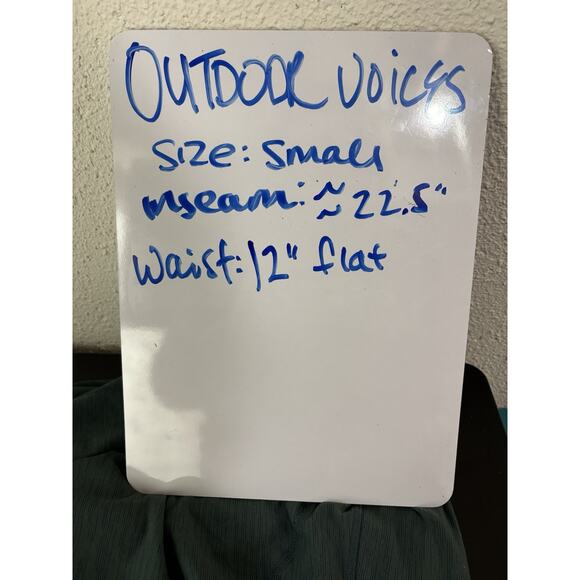 OUTDOOR VOICES
SIZE: Small
inseam: ≈ 22.5"
Waist: 12" flat